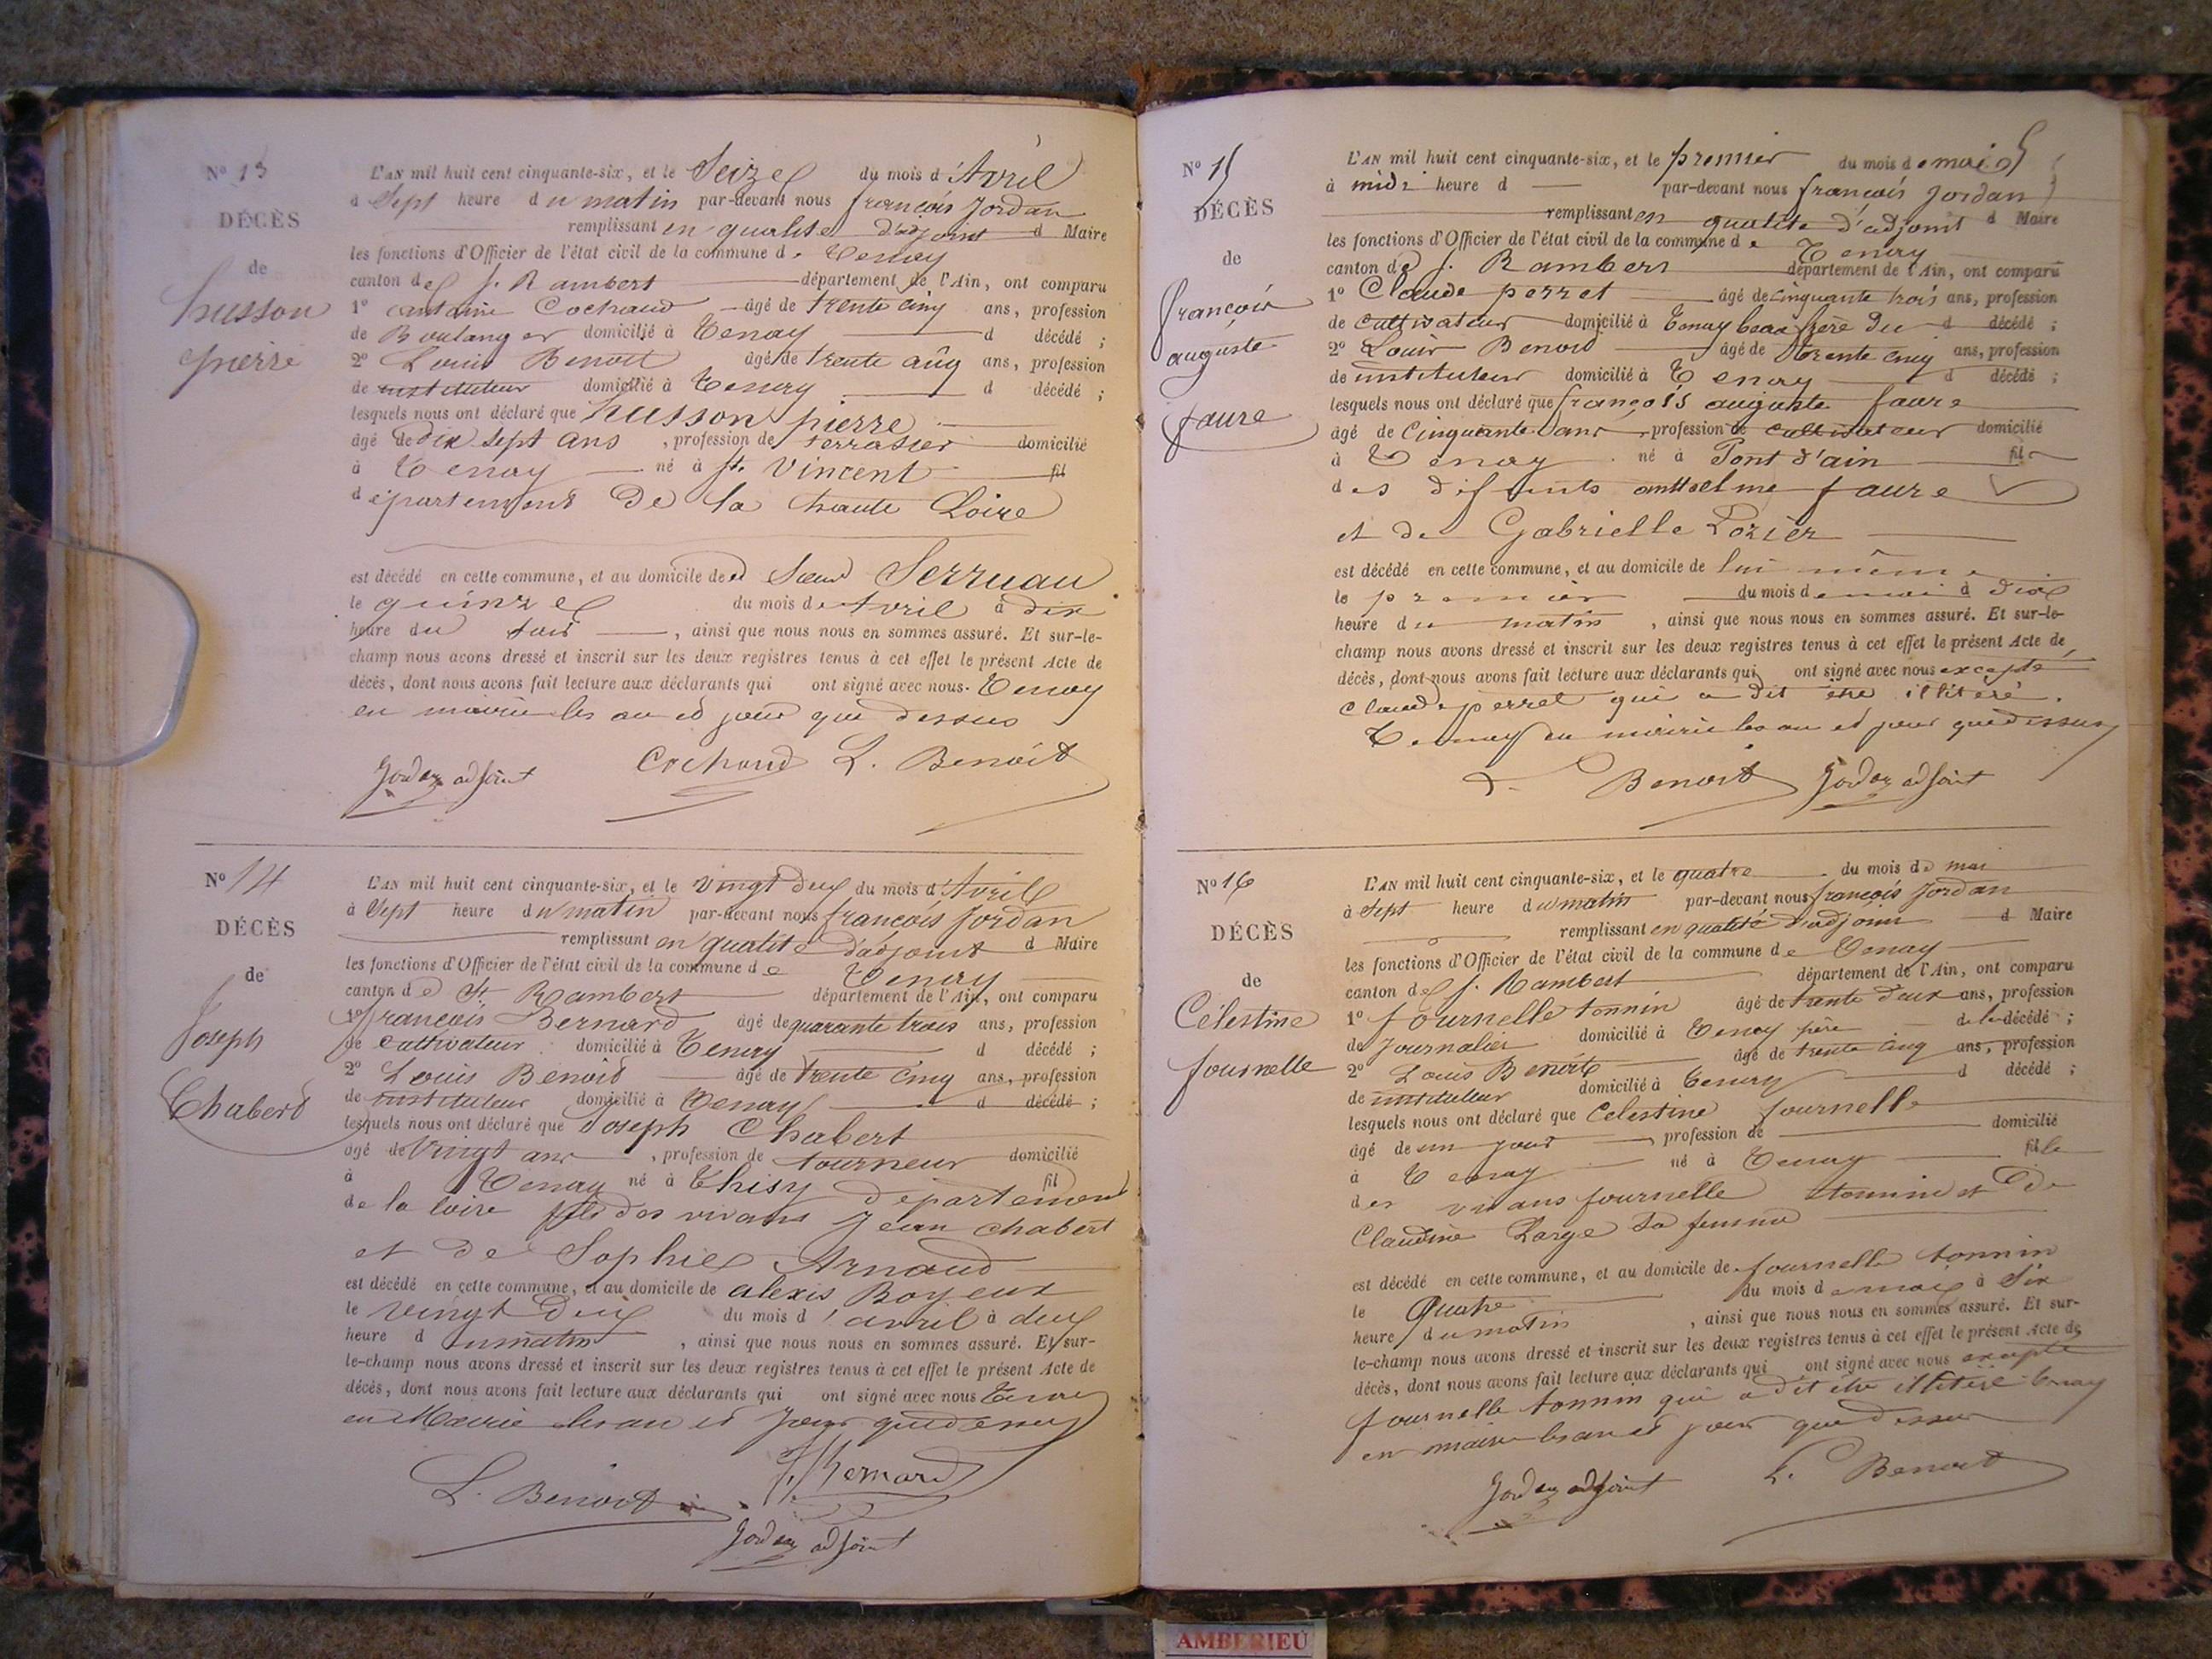 N° 13
DÉCÈS
de
husson
pierre
L'AN mil huit cent cinquante-six, et le Seize du mois d'Avril
à Sept heure du matin par-devant nous françois Jordan
remplissant en qualité d'adjoint d Maire
les fonctions d'Officier de l'état civil de la commune de Tenay
canton de S. Rambert département de l'Ain, ont comparu
1° antoine Cochaud âgé de trente cinq ans, profession
de Boulanger domicilié à Tenay d décédé ;
2° Louis Benoit âgé de trente cinq ans, profession
de instituteur domicilié à Tenay d décédé ;
lesquels nous ont déclaré que husson pierre
âgé de dix sept ans , profession de terrassier domicilié
à Tenay né à St. Vincent fil
departement De la haute Loire
est décédé en cette commune, et au domicile de Serruau
le quinze du mois de Avril à dix
heure du soir , ainsi que nous nous en sommes assuré. Et sur-le-
champ nous avons dressé et inscrit sur les deux registres tenus à cet effet le présent Acte de
décès, dont nous avons fait lecture aux déclarants qui ont signé avec nous. Tenay
en mairie les an et jour que dessus
Jordan adjoint Cochaud L. Benoit
N° 14
DÉCÈS
de
Joseph
Chabert
L'AN mil huit cent cinquante-six, et le vingt deux du mois d'Avril
à Sept heure du matin par-devant nous françois Jordan
remplissant en qualité d'adjoint d Maire
les fonctions d'Officier de l'état civil de la commune de Tenay
canton de St Rambert département de l'Ain, ont comparu
1° francois Bernard âgé de quarante trois ans, profession
de cultivateur domicilié à Tenay d décédé ;
2° Louis Benoit âgé de trente cinq ans, profession
de instituteur domicilié à Tenay d décédé ;
lesquels nous ont déclaré que Joseph Chabert
âgé de vingt ans , profession de tourneur domicilié
à Tenay né à Thisy departement fil
de la loire fils des vivans Jean chabert
et de Sophie Arnaud
est décédé en cette commune, et au domicile de alexis Boyeux
le vingt deux du mois d'avril à deux
heure du matin , ainsi que nous nous en sommes assuré. Et sur-
le-champ nous avons dressé et inscrit sur les deux registres tenus à cet effet le présent Acte de
décès, dont nous avons fait lecture aux déclarants qui ont signé avec nous Tenay
en Mairie les an et Jour que dessus
L. Benoit f. Bernard
Jordan adjoint
N° 15
DÉCÈS
de
françois
auguste
faure
L'AN mil huit cent cinquante-six, et le premier du mois de mai
à midi heure d par-devant nous françois Jordan
remplissant en qualité d'adjoint d Maire
les fonctions d'Officier de l'état civil de la commune de Tenay
canton de S. Rambert département de l'Ain, ont comparu
1° Claude perret âgé de cinquante trois ans, profession
de cultivateur domicilié à Tenay beau frère du d décédé ;
2° Louis Benoit âgé de trente cinq ans, profession
de instituteur domicilié à Tenay d décédé ;
lesquels nous ont déclaré que françois auguste faure
âgé de Cinquante ans , profession de cultivateur domicilié
à Tenay né à Pont d'ain fil
des défunts anthelme faure
et de Gabrielle Lozier
est décédé en cette commune, et au domicile de lui même
le premier du mois de mai à dix
heure du matin , ainsi que nous nous en sommes assuré. Et sur-le-
champ nous avons dressé et inscrit sur les deux registres tenus à cet effet le présent Acte de
décès, dont nous avons fait lecture aux déclarants qui ont signé avec nous excepté
Claude perret qui a dit être illitéré.
Tenay en mairie les an et jour que dessus
L. Benoit Jordan adjoint
N° 16
DÉCÈS
de
Célestine
fournelle
L'AN mil huit cent cinquante-six, et le quatre du mois de mai
à Sept heure du matin par-devant nous françois Jordan
remplissant en qualité d'adjoint d Maire
les fonctions d'Officier de l'état civil de la commune de Tenay
canton de S. Rambert département de l'Ain, ont comparu
1° fournelle tonnin âgé de trente deux ans, profession
de journalier domicilié à Tenay père de la décédé ;
2° Louis Benoit âgé de trente cinq ans, profession
de instituteur domicilié à Tenay d décédé ;
lesquels nous ont déclaré que Celestine fournelle
âgé de un jour , profession de domicilié
à Tenay né à Tenay fille
des vivans fournelle tonnin et de
Claudine Large sa femme
est décédé en cette commune, et au domicile de fournelle tonnin
le Quatre du mois de mai à Six
heure du matin , ainsi que nous nous en sommes assuré. Et sur-
le-champ nous avons dressé et inscrit sur les deux registres tenus à cet effet le présent Acte de
décès, dont nous avons fait lecture aux déclarants qui ont signé avec nous excepté
fournelle tonnin qui a dit être illitéré tenay
en mairie les an et jour que dessus
Jordan adjoint L. Benoit
AMBERIEU